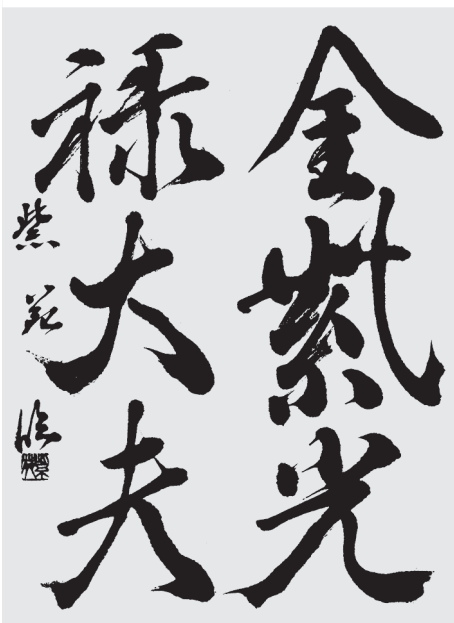 金紫光
禄大夫
紫苑臨